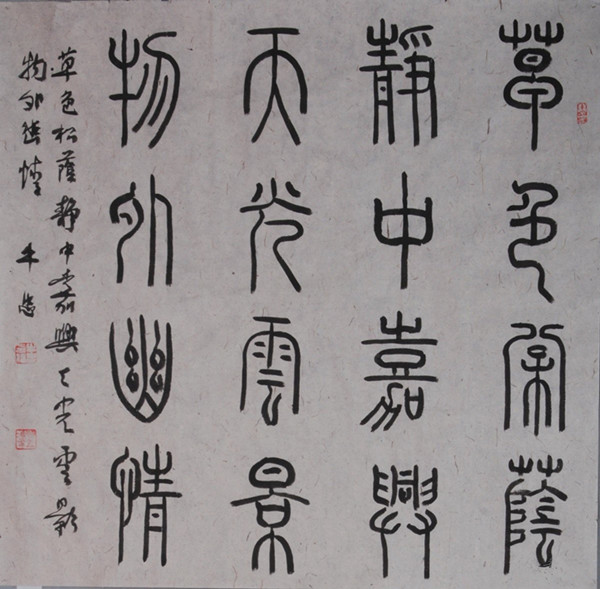 草色松蔭
靜中嘉興
天光雲景
物外幽情
草色松蔭靜中嘉興天光雲影
物外幽情